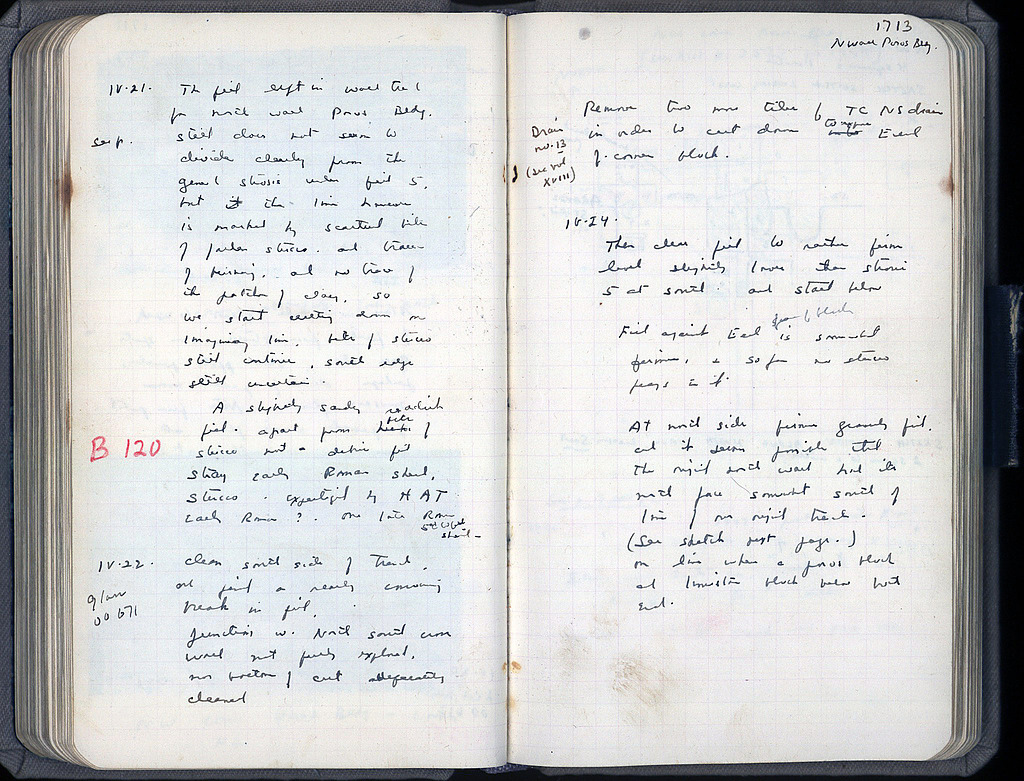 IV.21. The fill left in wall trench
for north wall Poros Bldg.
still does not seem to
divide clearly from the
general strosis under fill 5,
but the line however
is marked by scattered bits
of fallen stucco and traces
of burning, and no trace of
the patches of clay, so
we start cutting down on
imaginary line. bits of stucco
still continue, south edge
still uncertain.
A slightly sandy reddish
fill. apart from bits of
B 120
stucco not a definite fill
stray early Roman sherd,
stucco. expertized by HAT
Early Roman?. one late Roman
sherd
IV.22. clean south side of trench,
and find a nearly convincing
glass
break in fill.
Junction w. North south cross
wall not fully explored,
nor bottom of cut adequately
cleaned
1713
N wall Poros Bldg.
Remove two more tiles of TC NS drain
in order to cut down E end
of corner block.
Drain
no. 13
(see vol
XVIII)
IV.24.
Then clear fill to rather firm
level slightly lower than strosis
5 at south. and start below
Fill against E end of block is somewhat
firmer, & so far no stucco
frags in it.
At north side firm gravelly fill.
and it seems possible that
the original north wall had its
north face somewhat south of
line of our original trench.
(See sketch next page.)
on line where a poros block
and limestone block below west
end.